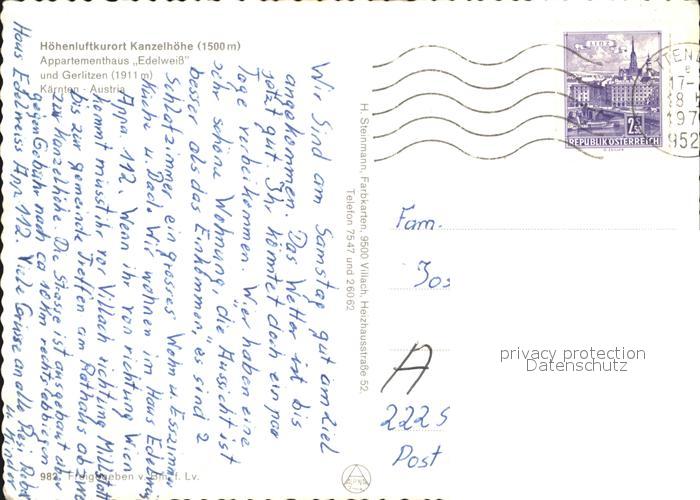 Höhenluftkurort Kanzelhöhe (1500 m)
Appartementhaus „Edelweiß"
und Gerlitzen (1911 m)
Kärnten - Austria
Wir Sind am Samstag gut am Ziel
angekommen. Das Wetter ist bis
jetzt gut. Ihr könntet doch ein par
Tage vorbeikommen. Wier haben eine
sehr schöne Wohnung, die Aussicht ist
besser als das Einkommen, es sind 2
Schlafzimmer ein grosses Wohn u. Esszimmer
Küche u. Bad. Wir wohnen im Haus Edelweiss
Appa. 112. Wenn ihr von richtung Wien
kommt müsst ihr vor Villach richtung Millstatt
bis zur gemeinde Treffen am Rathaus
zur Kanzelhöhe. Die Strasse ist ausgebaut aber
gegen Gebühr nach ca 10 km rechts abbiegen
Haus Edelweiss App. 112. Viele Grüsse an alle
H. Steinmann, Farbkarten, 9500 Villach, Heizhausstraße 52,
Telefon 7547 und 26062
LINZ
2S
REPUBLIK ÖSTERREICH
Fam.
Jos
A
2225
Post
privacy protection
Datenschutz
Freigegeben v. f. Lv.